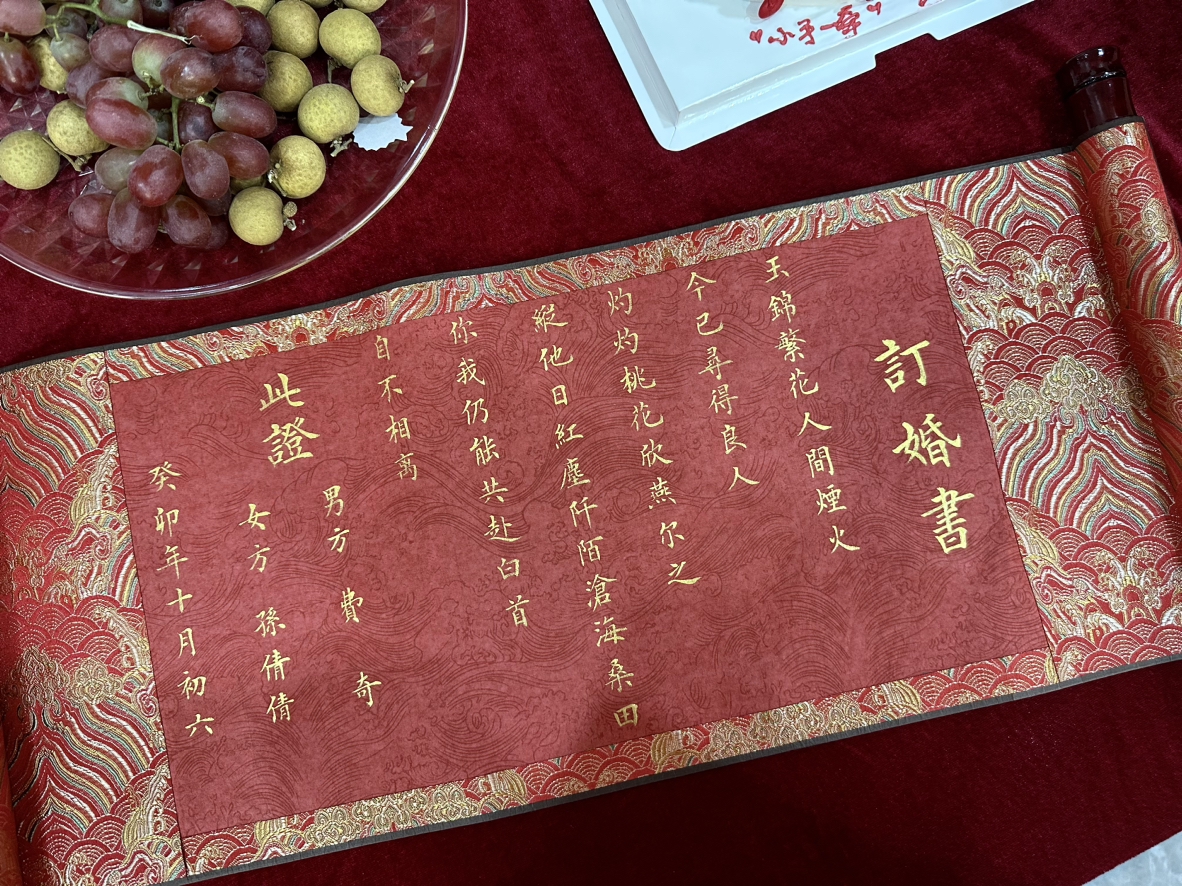 訂婚書
玉錦繁花人間煙火
今已尋得良人
灼灼桃花欣燕尔之
縱他日紅塵阡陌滄海桑田
你我仍能共赴白首
自不相离
此證
男方 費 奇
女方 孫倩倩
癸卯年十月初六
"小手一牵"